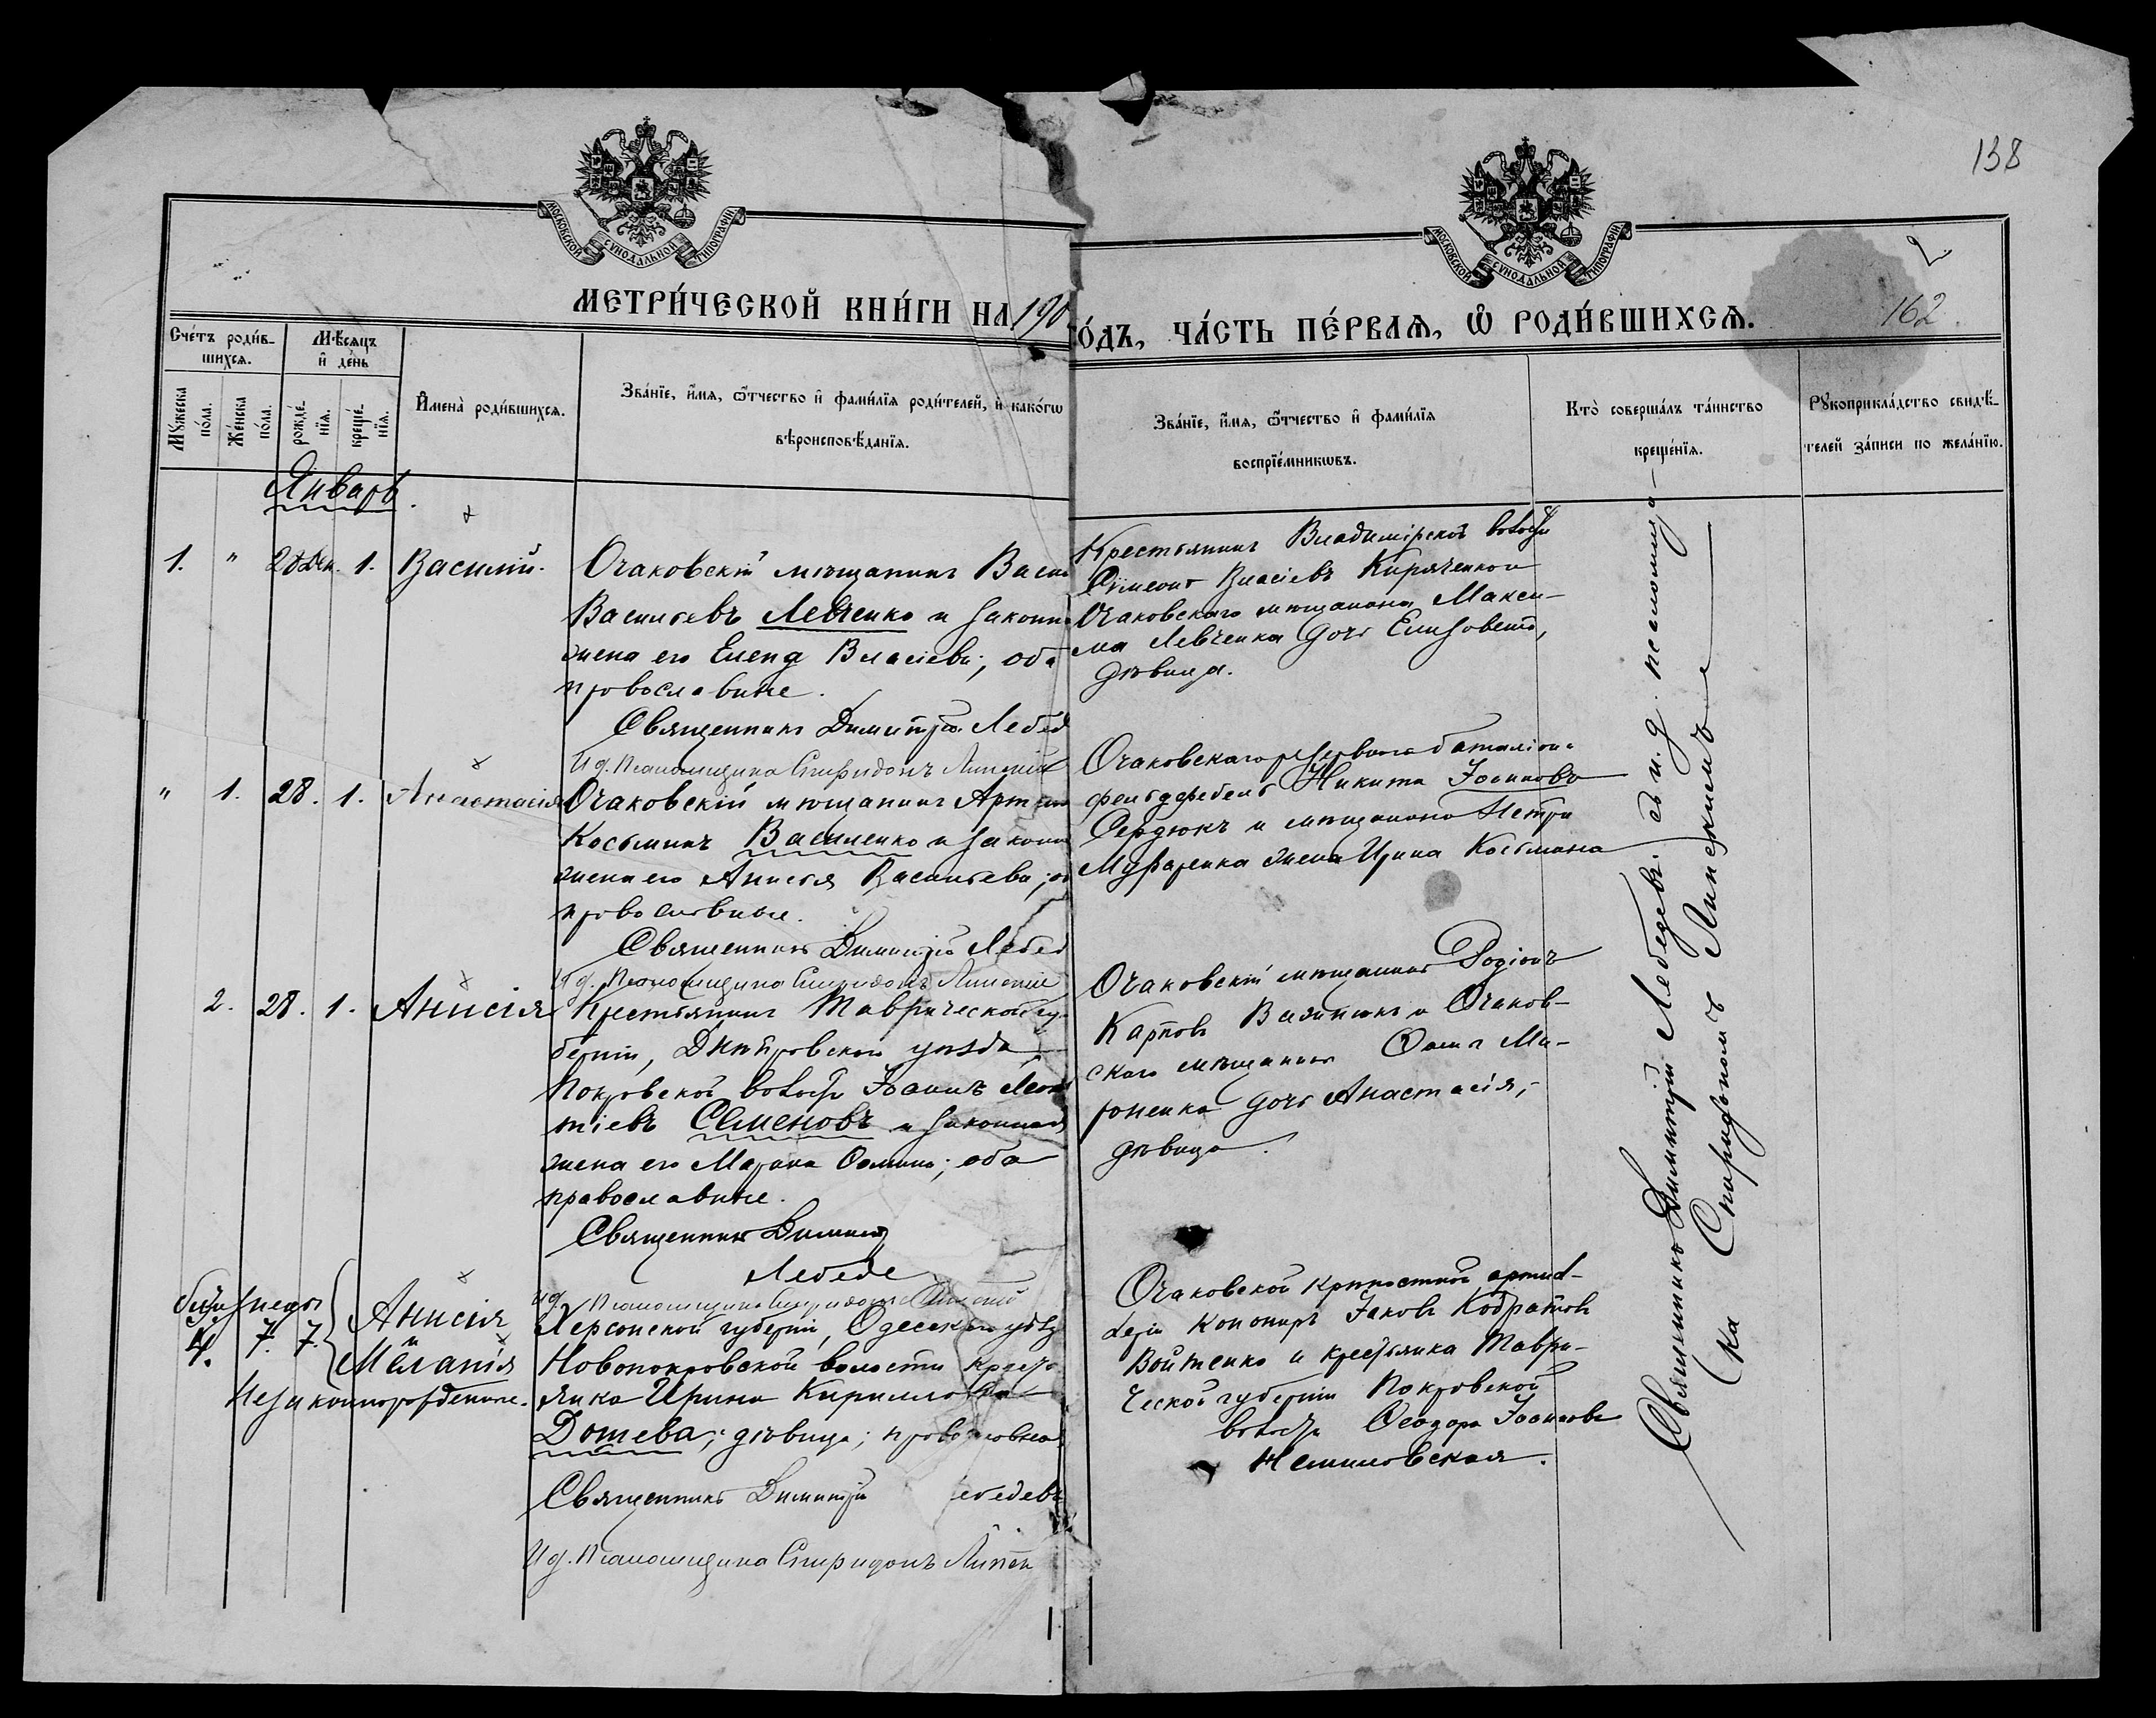 138
МОСКОВСКОЙ СУНОДАЛЬНОЙ ТИПОГРАФІИ
МОСКОВСКОЙ СУНОДАЛЬНОЙ ТИПОГРАФІИ
162
МЕТРИ́ЧЕСКОЙ КНИ́ГИ НА 190
ГО́ДЪ, ЧА́СТЬ ПЕ́РВАѦ, Ѽ РОДИ́ВШИХСѦ.
Сче́тъ роди́в-
шихсѧ.
Мѣ́сѧцъ
и҆ де́нь
Мꙋ́жеска по́ла.
Же́нска по́ла.
рожде́-нїѧ.
креще́-нїѧ.
И҆мена̀ роди́вшихсѧ.
Зва́нїе, и҆́мѧ, ѻ҆́тчество и҆ фами́лїѧ роди́телей, и҆ како́гѡ
вѣроисповѣ́данїѧ.
Зва́нїе, и҆́мѧ, ѻ҆́тчество и҆ фами́лїѧ
воспрїе́мникѡвъ.
Кто̀ соверша́лъ та́инство
креще́нїѧ.
Рꙋкоприкла́дство свидѣ́-
телей за́писи по жела́нїю.
Январь.
1. " 28 Дек. 1. Василій.
Очаковскій мѣщанинъ Васи
Васильевъ Левченко и законн
жена его Елена Власіева; оба
православные.
Священникъ Димитрій Лебед
И д. Псаломщика Спиридонъ Липскій
Крестьянинъ Владимірской волости
Сѵмеонъ Власіевъ Кириченко и
Очаковскаго мѣщанина Макси-
ма Левченка дочь Елизавета,
дѣвица.
" 1. 28. 1. Анастасія
Очаковскій мѣщанинъ Артем
Косьминъ Василенко и законн
жена его Анисія Васильева; об
православные.
Священникъ Димитрій Лебед
И д. Псаломщика Спиридонъ Липскій
Очаковскаго резервнаго баталіона
фельдфебель Никита Іосифовъ
Сердюкъ и мѣщанина Петра
жена Ирина Косьмина
2. 28. 1. Анисія
Крестьянинъ Таврической гу-
берніи, Днѣпровскаго уѣзда,
Покровской волости Іоаннъ Леон
тіевъ Семеновъ и законная
жена его Марина Ѳомина; оба
православные.
Священникъ Димит
Лебеде
И д. Псаломщика Спиридонъ Липскій
Очаковскій мѣщанинъ Родіонъ
Карповъ и Очаков-
скаго мѣщанина Ѳомы Ми-
роненка дочь Анастасія,
дѣвица.
близнецы
4. 7. 7. Анисія
и
Меланія
Незаконнорожденные.
Херсонской губерніи, Одесскаго уѣз
Новопокровской волости кресть
янка Ирина Кириллова
Дотева, дѣвица; православная
Священникъ Димитрій ебедевъ
И д. Псаломщика Спиридонъ Липск
Очаковской крѣпостной артил-
леріи канониръ Іаковъ Кодратовъ
Войтенко и крестьянка Таври-
ческой губерніи Покровской
волости Ѳеодора Іосифова
Священникъ Димитрій Лебедевъ съ и. д. псаломщи-
ка Спиридономъ Липскимъ